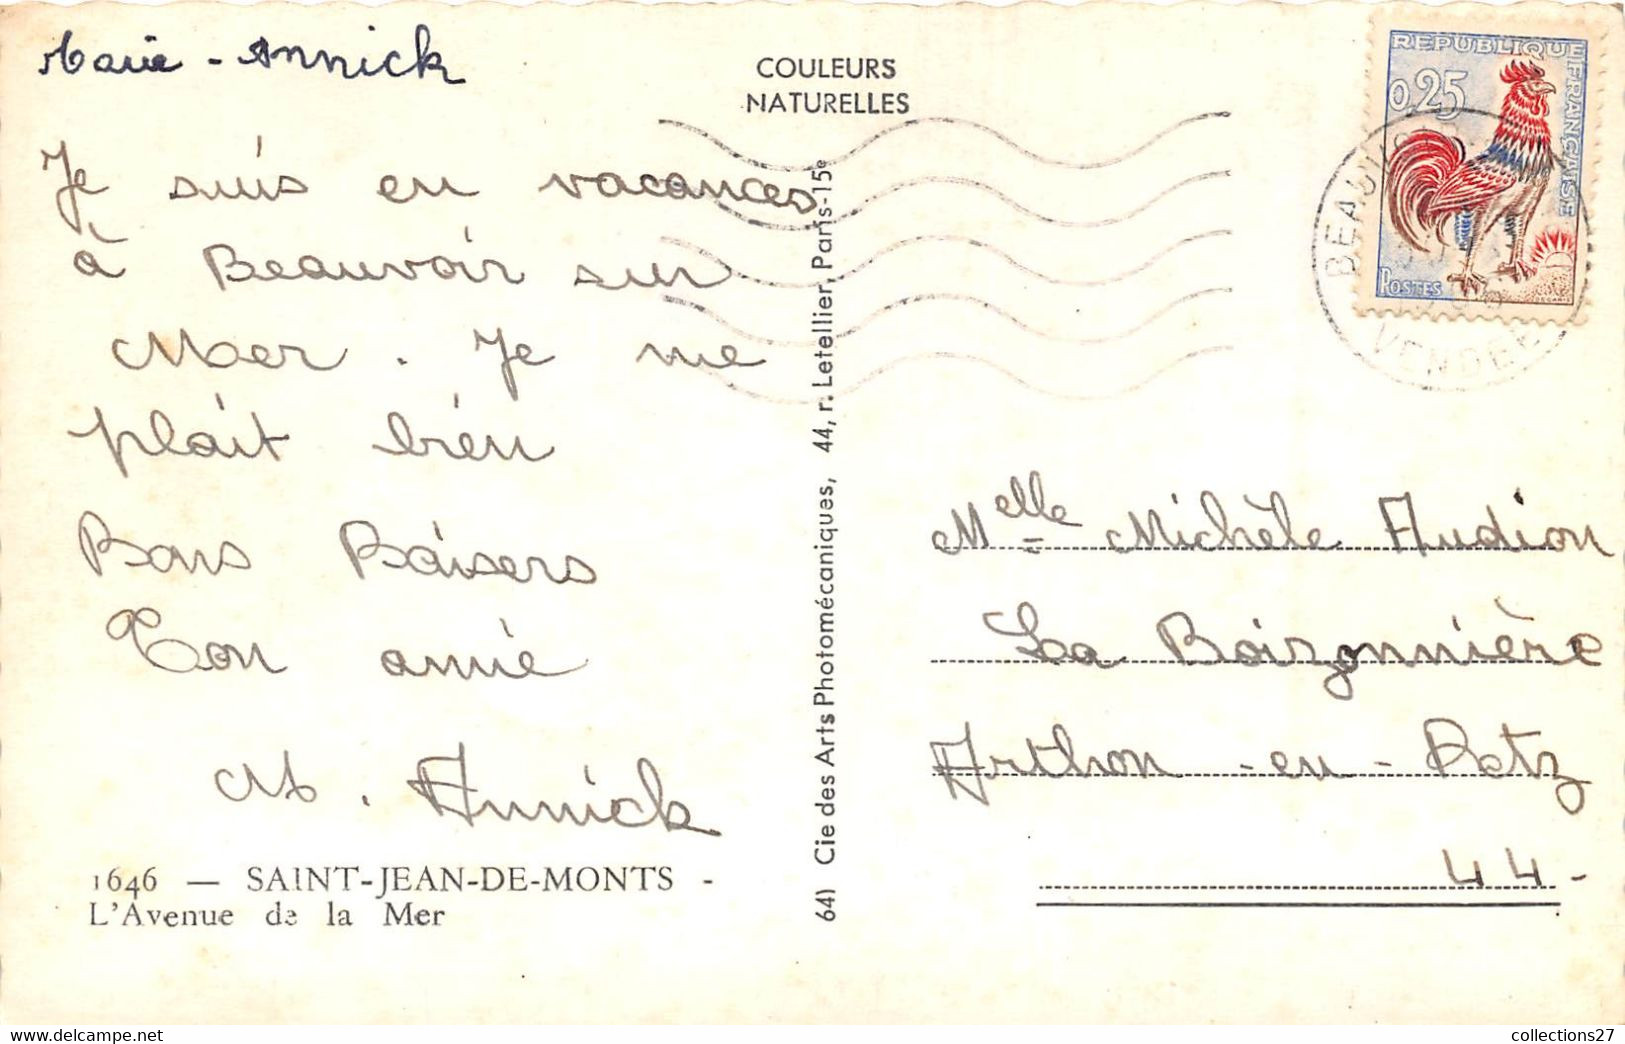 Marie - Annick
COULEURS
NATURELLES
REPUBLIQUE FRANÇAISE
0,25
POSTES
BEAUVO
VENDEE
Je suis en vacances
à Beauvoir sur
Mer. Je me
plait bien
Bons Baisers
Ton amie
M. Annick
1646 — SAINT-JEAN-DE-MONTS -
L'Avenue de la Mer
64) Cie des Arts Photomécaniques, 44, r. Letellier, Paris-15e
Melle Michèle Audion
La Boizonnière
Arthon -en- Retz
44-
collections27